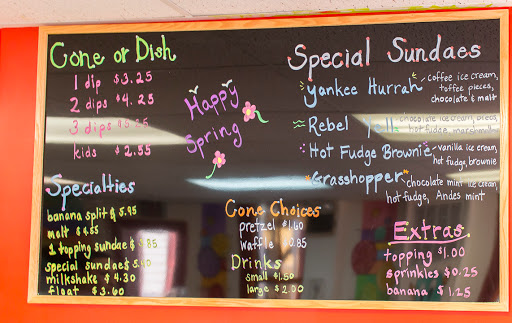 Cone or Dish
1 dip $3.25
2 dips $4.25
3 dips
kids $2.55
Happy
Spring
Special Sundaes
Yankee Hurrah - coffee ice cream,
toffee pieces,
chocolate & malt
Rebel
chocolate ice cream,
hot fudge, marshmallow
Hot Fudge Brownie - vanilla ice cream,
hot fudge, brownie
Grasshopper - chocolate mint ice cream
hot fudge, Andes mint
Specialties
banana split $5.95
malt
1 topping sundae $
special sundae $
milkshake $4.30
float $3.60
Cone Choices
pretzel $1.60
waffle $0.85
Drinks
small $1.50
large $2.00
Extras
topping $1.00
sprinkles $0.25
banana $1.25